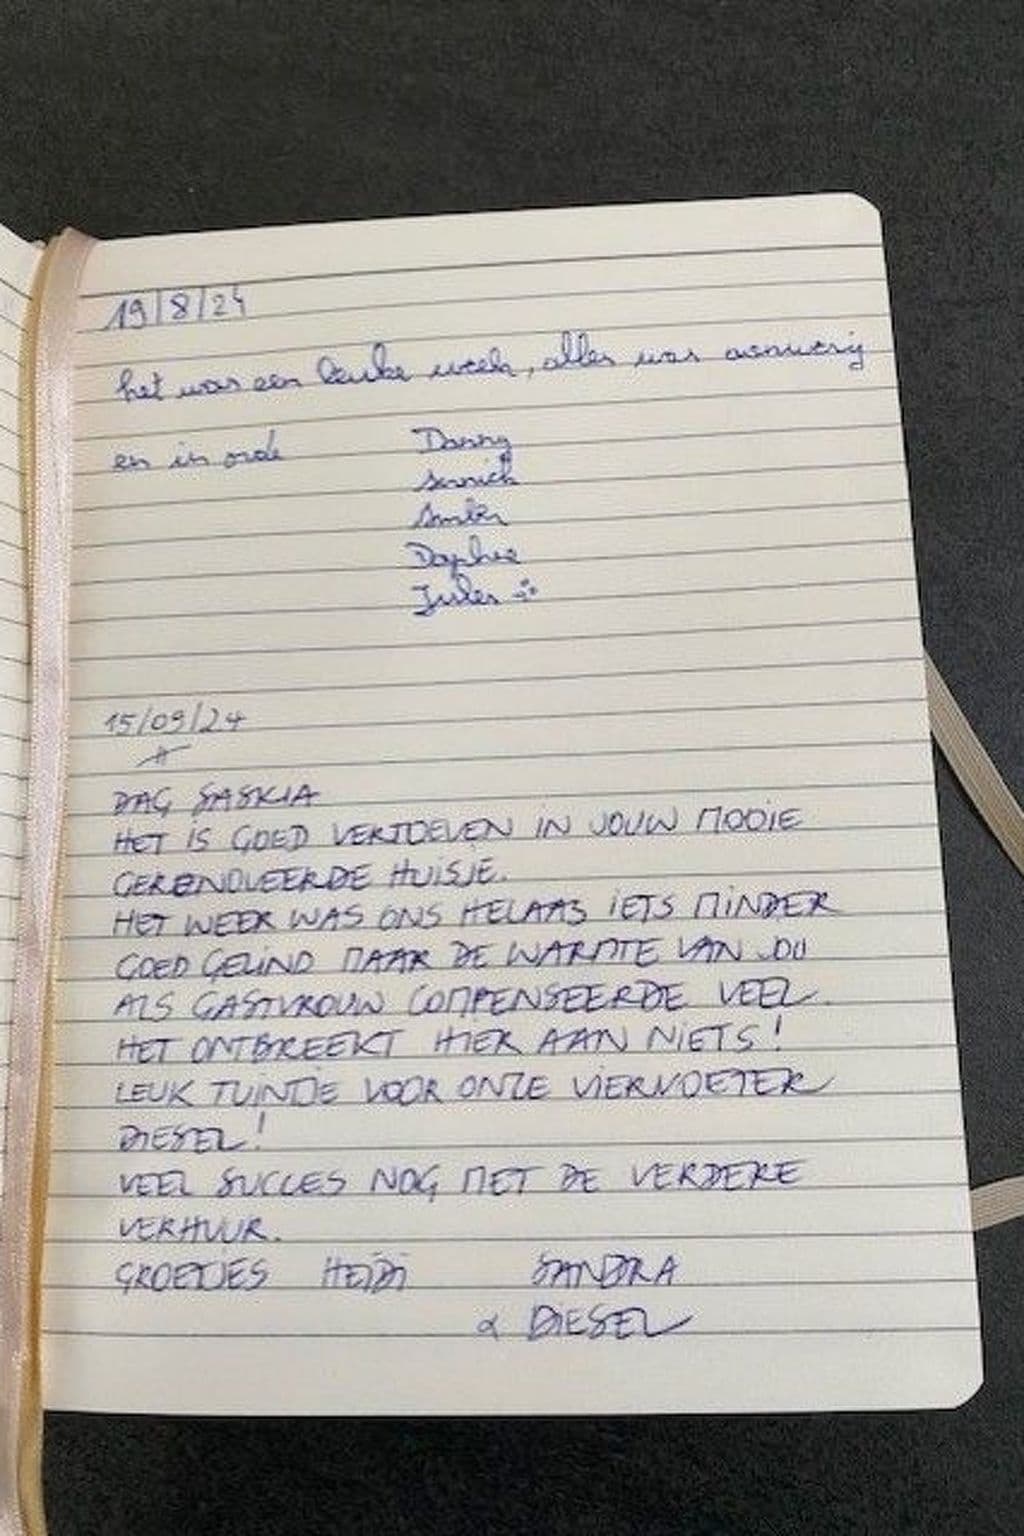 19/8/24
het was een leuke week, alles was aanwezig
en in orde
Danny
Annick
Amber
Daphne
Jules
15/09/24
DAG SASKIA
HET IS GOED VERTOEVEN IN JOUW MOOIE
GERENOVEERDE HUISJE.
HET WEER WAS ONS HELAAS IETS MINDER
GOED GEZIND MAAR DE WARMTE VAN JOU
ALS GASTVROUW COMPENSEERDE VEEL.
HET ONTBREEKT HIER AAN NIETS!
LEUK TUINTJE VOOR ONZE VIERVOETER
DIESEL!
VEEL SUCCES NOG MET DE VERDERE
VERHUUR.
GROETJES HEIDI SANDRA
& DIESEL